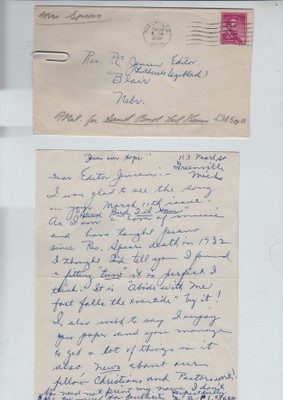 Mrs Spears
Rev. P.C. Jensen Editor.
(Lutherske Ugeblad)
Blair
Nebr.
Mel. for
113 Pearl St
Greenville
Mich
Dear Editor Jensen:-
I was glad to see the song
in your March 11th issue.
As I am a lover of music
and have taught piano
since Rev. Spears death in 1932
I thought I'd tell you I found
a fitting "tune" it is perfect I
think. It is "Abide with Me
fast falls the eventide" try it!
I also wish to say I enjoy
your paper and you manage
to get a lot of things in it
also News about our
fellow Christians and Pastors work!
You need not print my name I don't